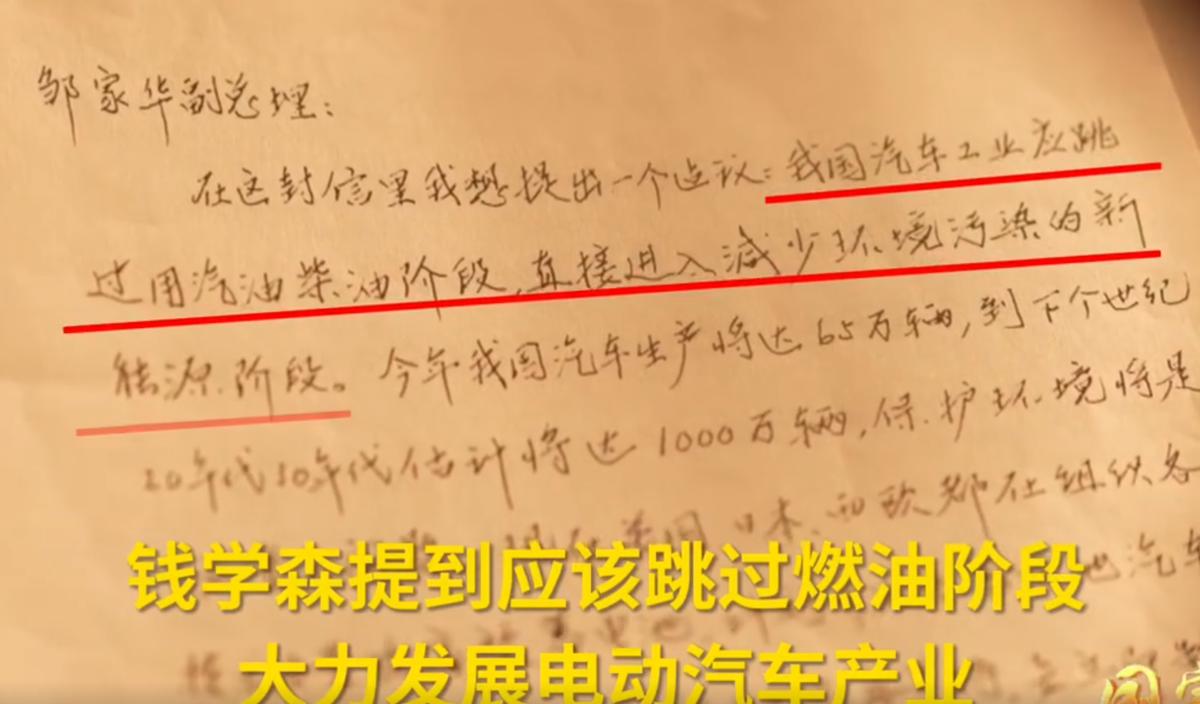 邹家华副总理：
在这封信里我想提出一个建议：我国汽车工业应跳
过用汽油柴油阶段，直接进入减少环境污染的新
能源阶段。今年我国汽车生产将达65万辆，到下个世纪
20年代30年代估计将达1000万辆，保护环境将是
日本、西欧都在组织各
汽车
钱学森提到应该跳过燃油阶段
大力发展电动汽车产业